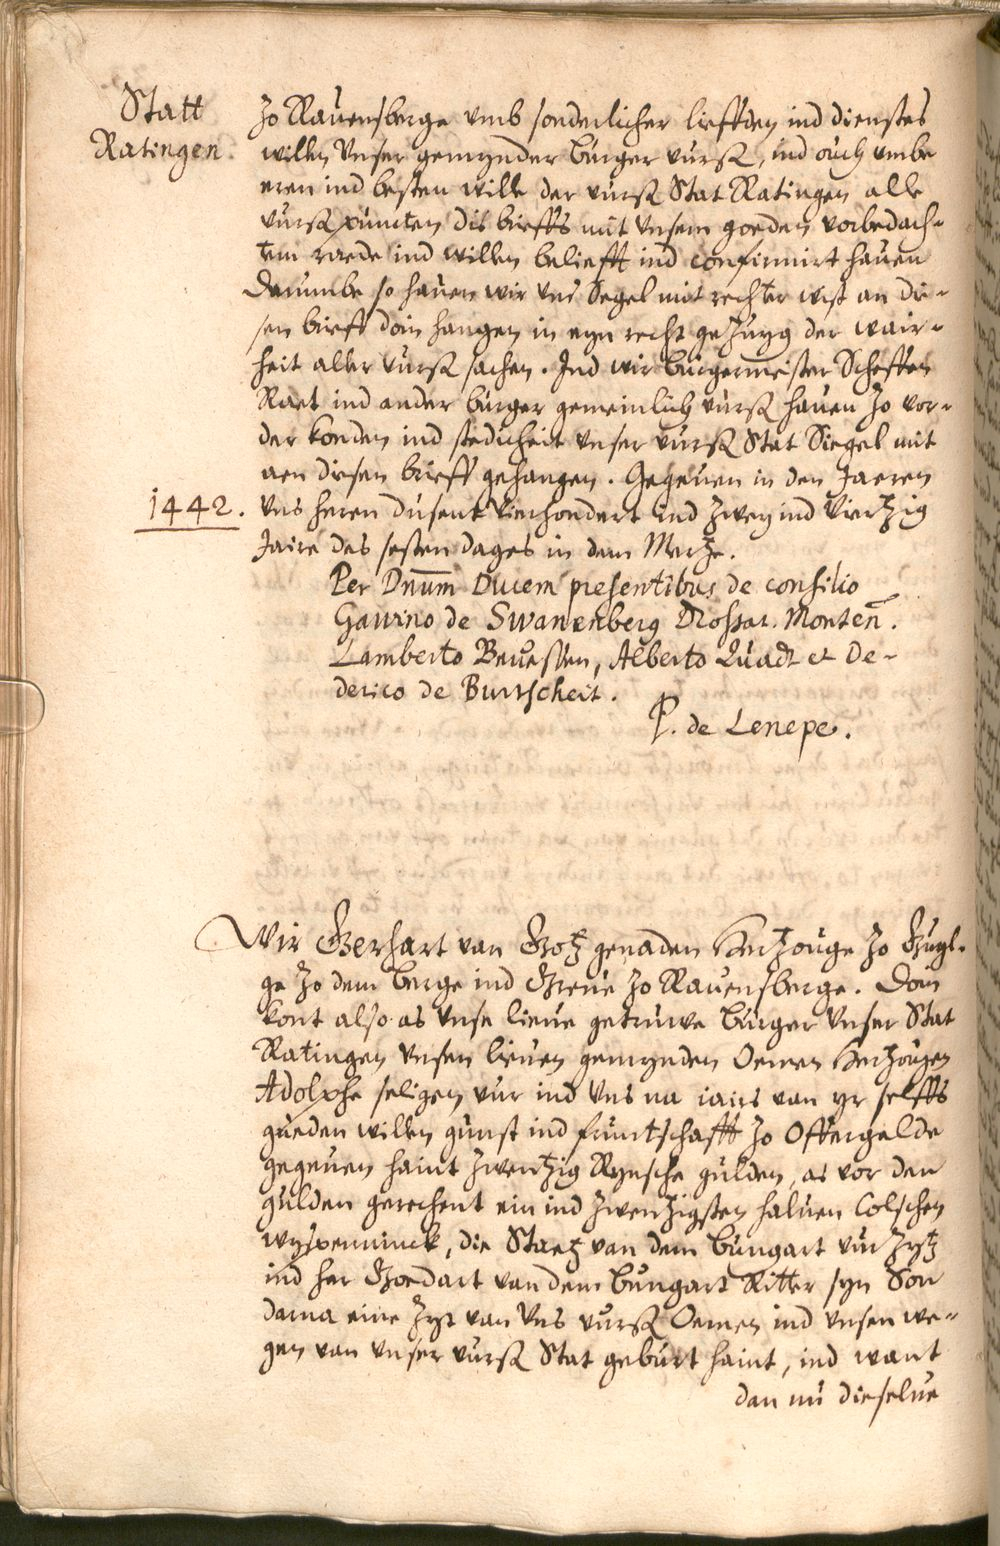 Statt
Ratingen.
zo Rauensberge vmb sonderlicher liefften ind dienstes
willen Vnser gemynder burger vurß, ind auch vmbe
eren ind besten wille der vurß Stat Ratingen alle
vurß puncten dis brieffs mit Vnsem goeden vorbedach-
tem raede ind willen belieft ind confirmirt hauen
Darumbe so hauen wir vns Segel mit rechter wist an die-
sen brieff doin hangen in eyn recht gezuyg der wair-
heit aller vurß sachen. Ind wir burgermeister Scheffen
Raet ind ander burger gemeinlich vurß hauen zo vor-
der konden ind stedicheit vnser vurß Stat Siegel mit
aen diesen brieff gehangen. Gegeuen in den Jaeren
1442.
Vns heren dusent Vierhondert ind zwey ind Viertzig
Jaire des sesten dages in dem Mertze.
Per Dnum Ducem presentibus de consilio
Gawino de Swanenberg Drossar. Monten.
Lamberto Beuessen, Alberto Quadt et De-
derico de Burtscheit.
P. de Lenepe.
Wir Gerhart van Gotz genaden Hertzouge zo Guyl-
ge zo dem berge ind Greue zo Rauensberge. Doin
kont also as vnse lieue getruwe burger Vnser Stat
Ratingen Vnsen lieuen gemynden Oemen Hertzougen
Adolphe seligen vur ind Vns na iairs van yr selffs
gueden willen gunst ind fruntschafft zo Offergelde
gegeuen haint zwentzig Rynsche gulden, as vor den
gulden gerechent ein ind zwentzigsten haluen Colschen
wyspenninck, die Staetz van dem bungart vur zytz
ind her Goedart van dem bungart Ritter syn Son
darna eine zyt van Vns vurß Oemen ind vnsen we-
gen van vnser vurß Stat geburt haint, ind want
dan nu dieselue